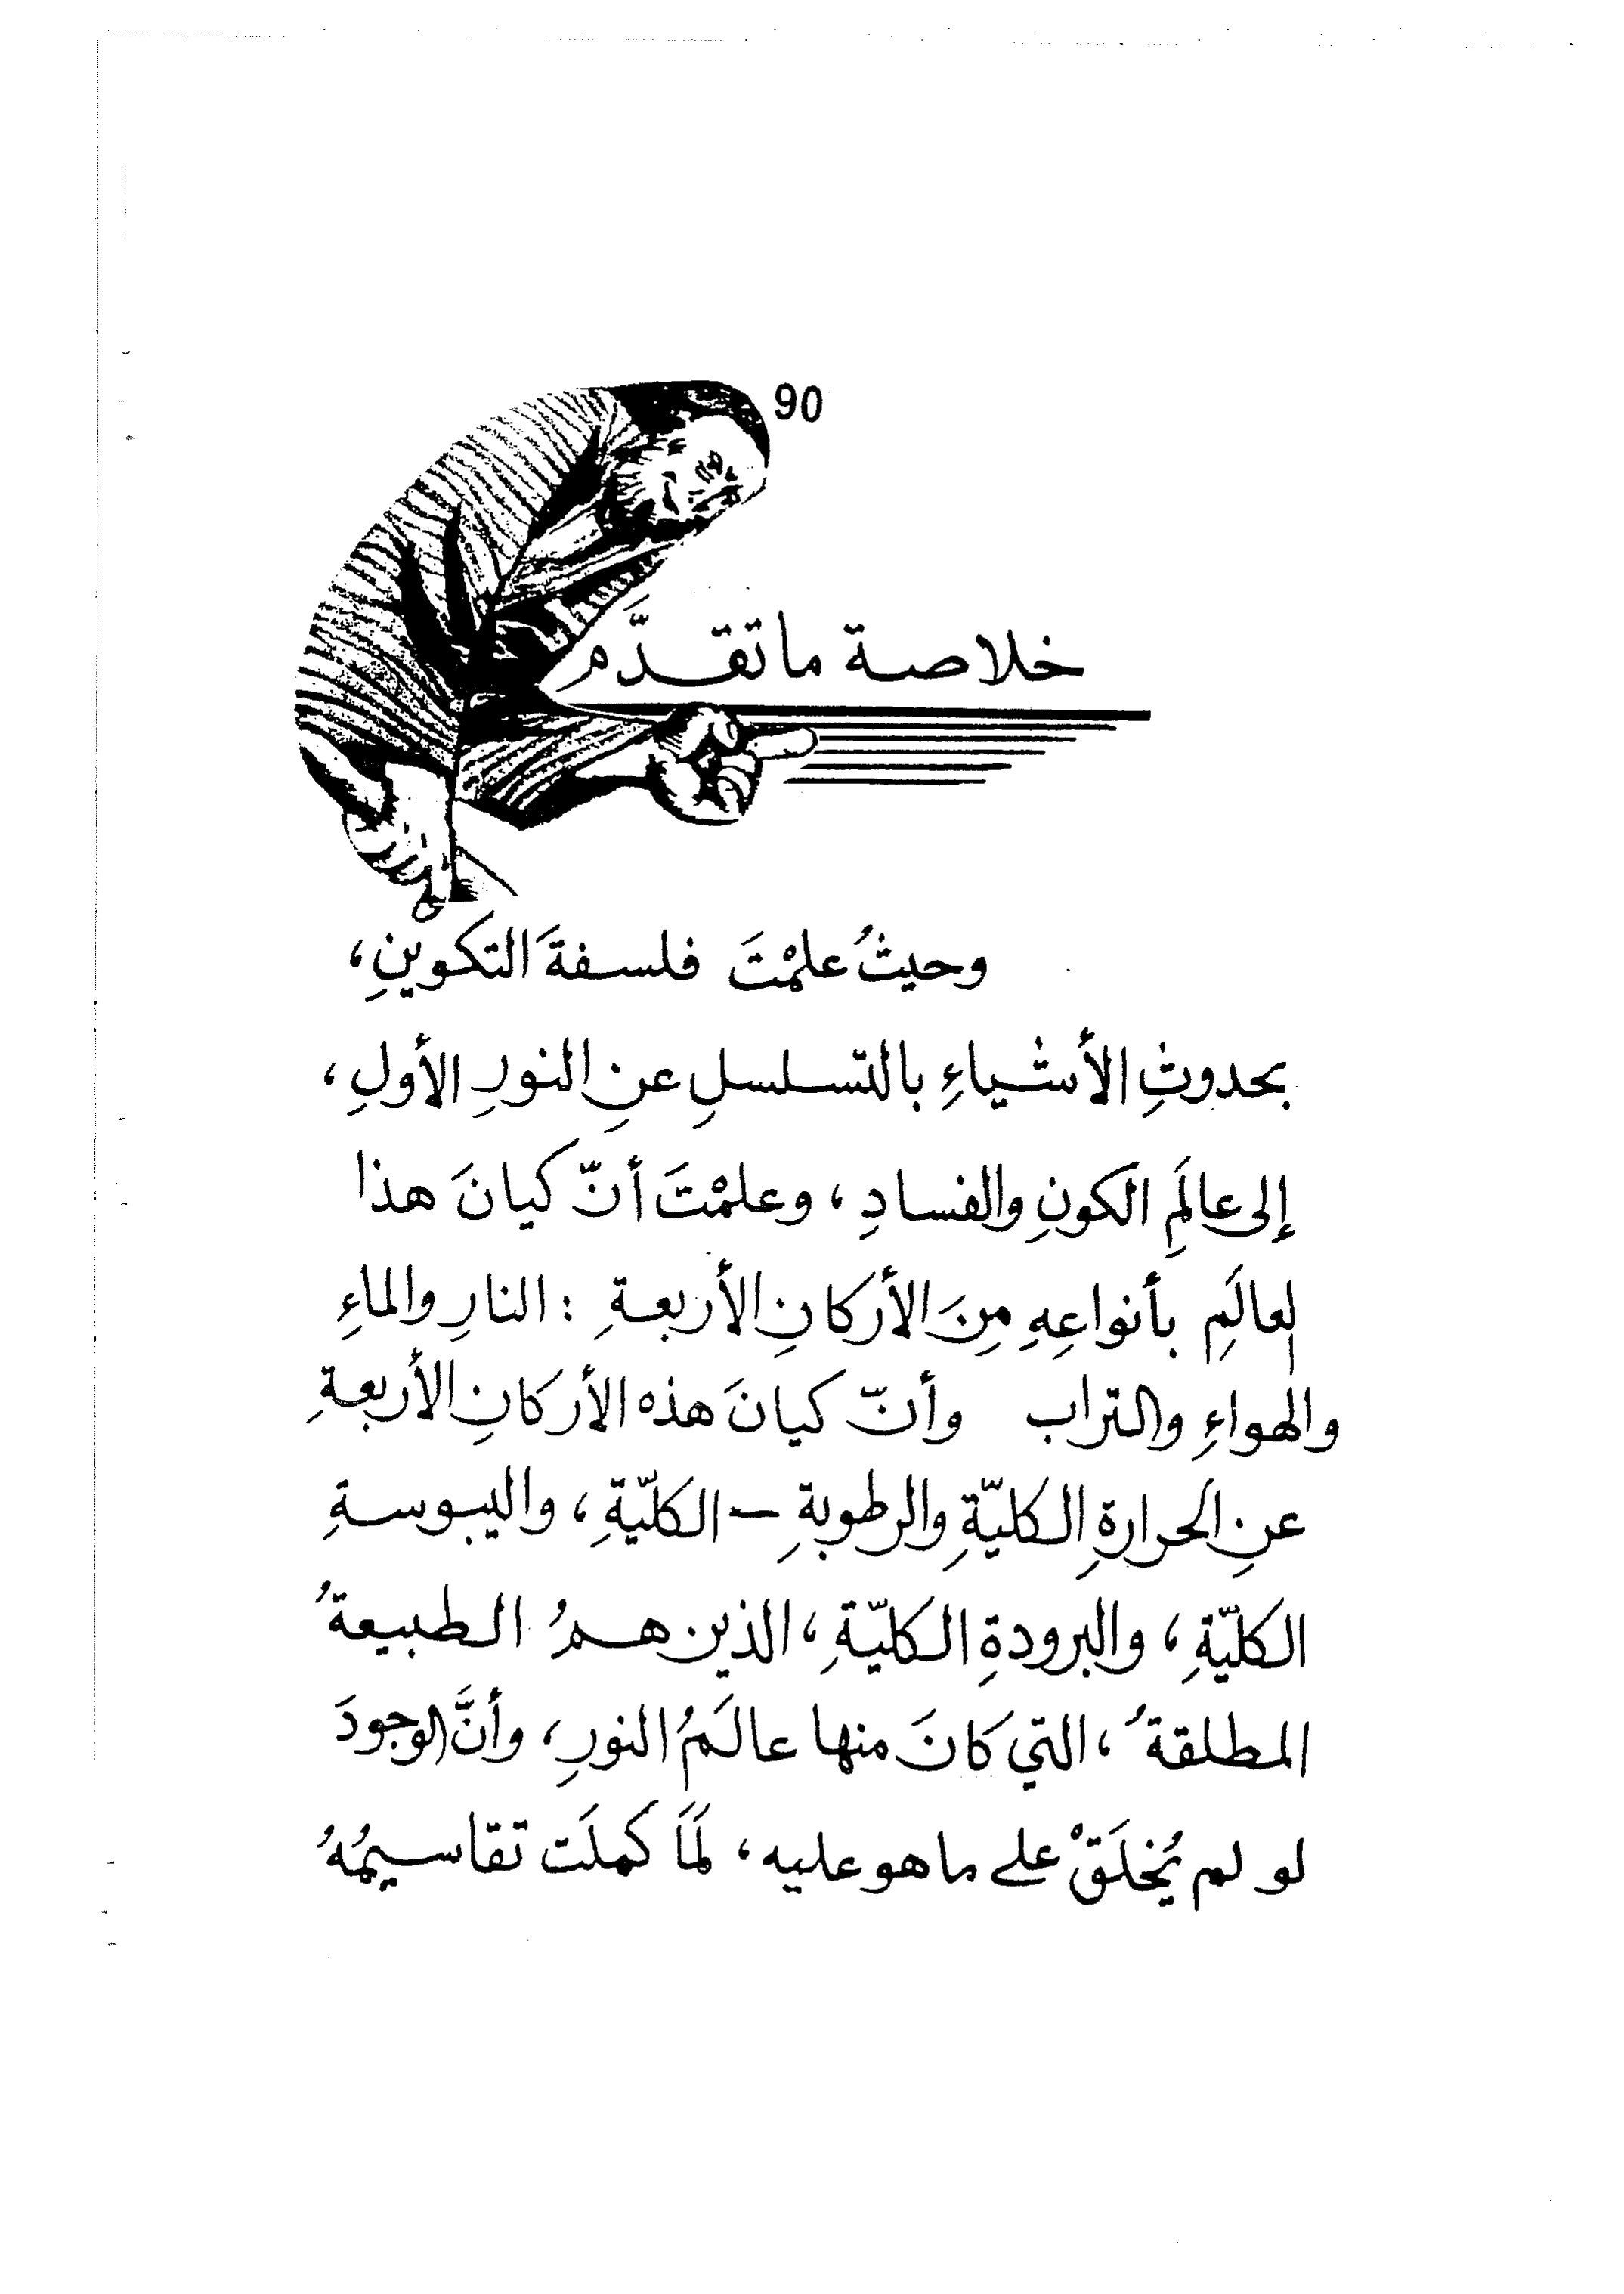 90
خلاصة ما تقدّم
وحيثُ علمْتَ فلسفةَ التكوينِ،
بحدوثِ الأشياءِ بالتسلسلِ عنِ النورِ الأولِ،
إلى عالَمِ الكونِ والفسادِ، وعلمْتَ أنّ كيانَ هذا
لعالَمِ بأنواعِهِ مِنَ الأركانِ الأربعةِ : النارِ والماءِ
والهواءِ والتراب وأنّ كيانَ هذه الأركانِ الأربعةِ
عنِ الحرارةِ الكليّةِ والرطوبةِ – الكليّةِ، واليبوسةِ
الكليّةِ، والبرودةِ الكليّةِ، الذين همُ الطبيعةُ
المطلقةُ، التي كانَ منها عالَمُ النورِ، وأنَّ الوجودَ
لو لم يُخلَقْ على ما هو عليه، لَمَا كملَت تقاسيمُهُ